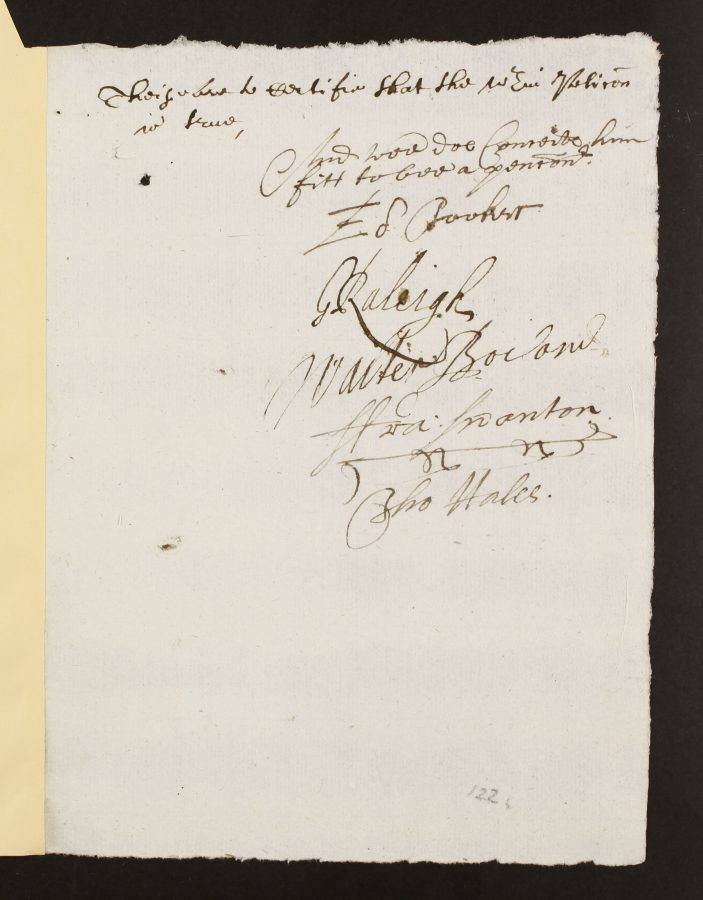 Theise are to certifie that the wthin Peticon
is true,
And wee doe Conceive him
fitt to bee a pencōnr.
Ed Booker
G Raleigh
Walter
Fra: Swanton
Tho Hales.
122